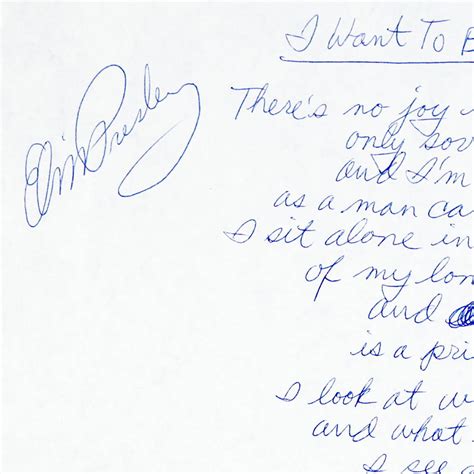 I Want To B
Elvis Presley
There's no joy
only sor
and I'm
as a man ca
I sit alone in
of my lon
and
is a pri
I look at w
and what
I see a